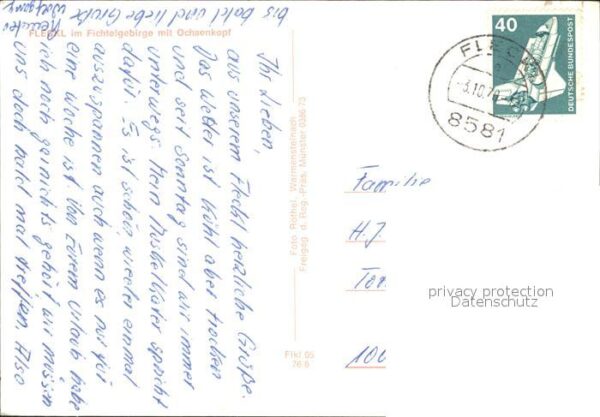 FLECKL im Fichtelgebirge mit Ochsenkopf
Ihr Lieben,
aus unserem Fleckl herzliche Grüße.
Das Wetter ist kühl aber trocken
und seit Sonntag sind wir immer
unterwegs. Mein Muskelkater spricht
dafür. Es ist schön wieder einmal
auszuspannen auch wenn es nur für
eine Woche ist. Von Eurem Urlaub habe
ich noch gar nichts gehört wir müssen
uns doch bald mal treffen. Also
bis bald und liebe Grüße
Wolfgang
Foto Rothel, Warmensteinach
Freigeg. d. Reg.-Präs. Münster
Flkl 05
76 6
40
DEUTSCHE BUNDESPOST
FLECKL
-3.10.
8581
Familie
H. J.
100
privacy protection
Datenschutz